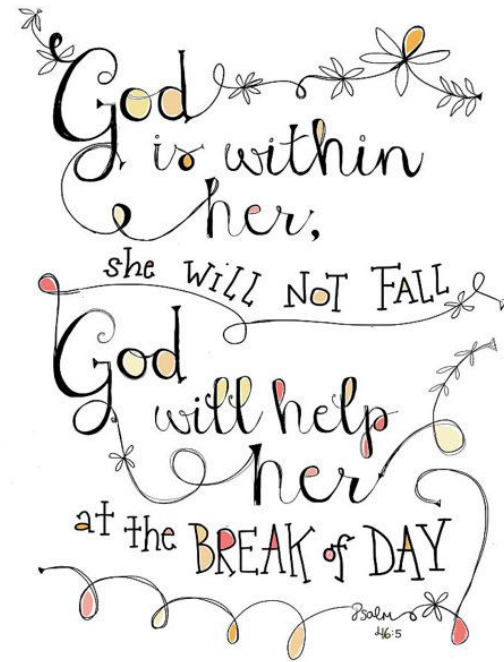 God
is within
her,
she WiLL NoT FALL
God
will help
her
at the BREAK of DAY
Psalm
46:5